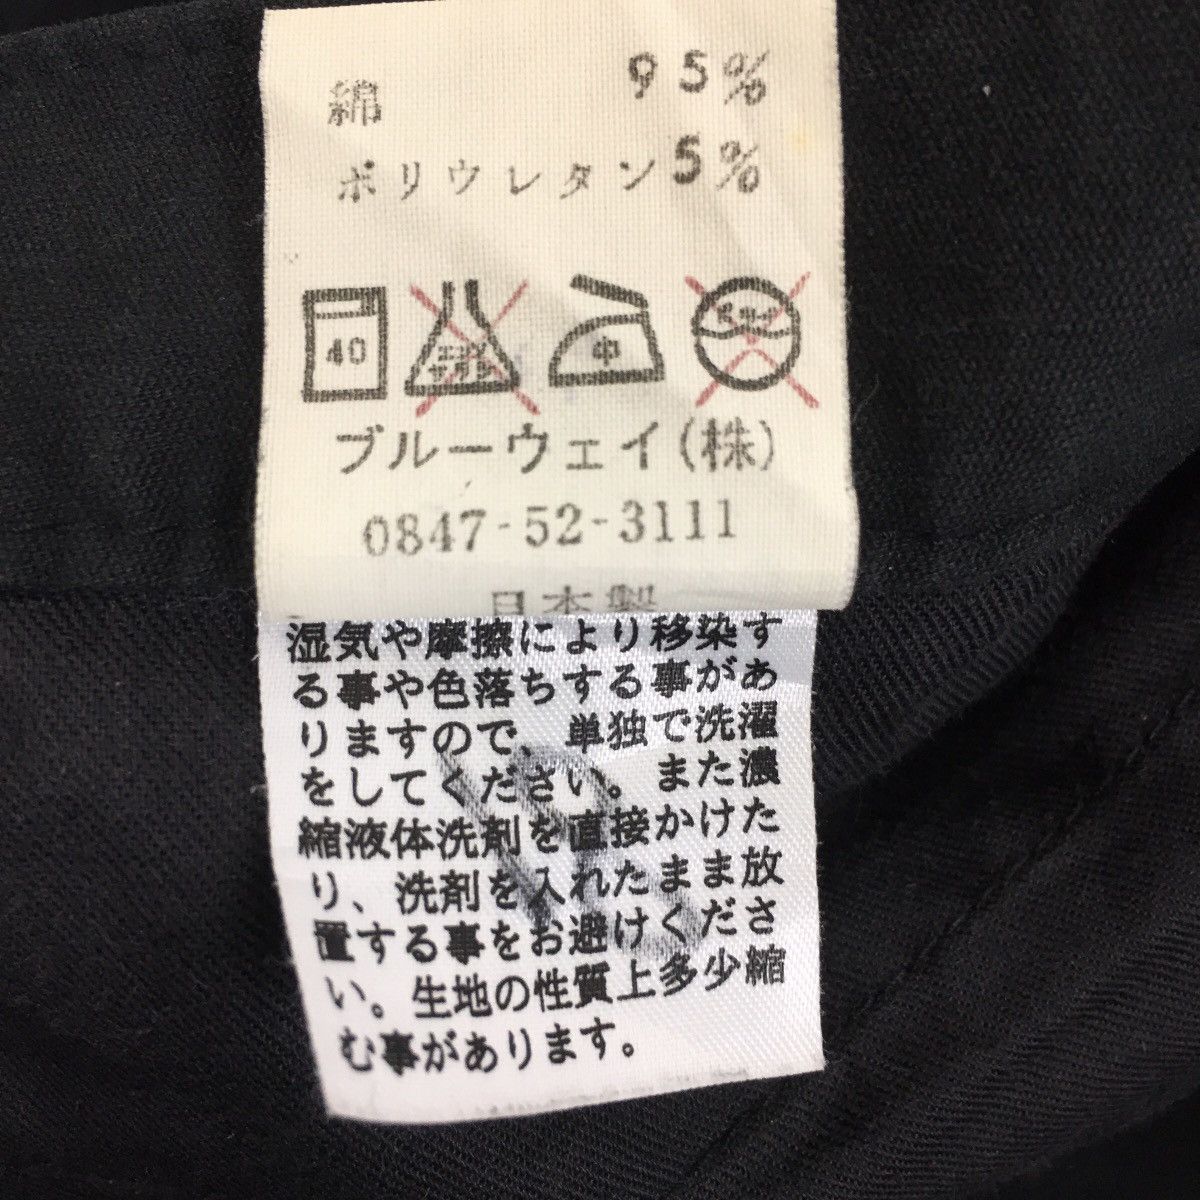 綿 95%
ポリウレタン 5%
40 エンソサラシ 中 ドライ
ブルーウェイ(株)
0847-52-3111
日本製
湿気や摩擦により移染す
る事や色落ちする事があ
りますので、単独で洗濯
をしてください。また濃
縮液体洗剤を直接かけた
り、洗剤を入れたまま放
置する事をお避けくださ
い。生地の性質上多少縮
む事があります。